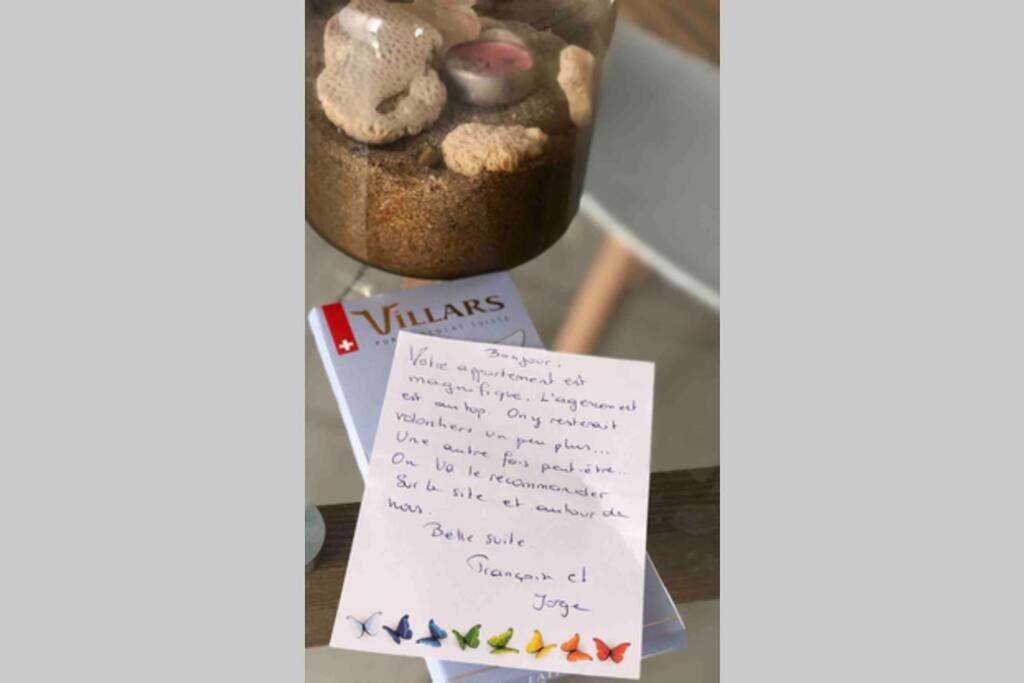 VILLARS
PUR CHOCOLAT SUISSE
Bonjour,
Votre appartement est
magnifique. L'agencement
est au top. On y resterait
volontiers un peu plus...
Une autre fois peut-être...
On va le recommander
sur le site et autour de
nous.
Belle suite.
et
Jorge